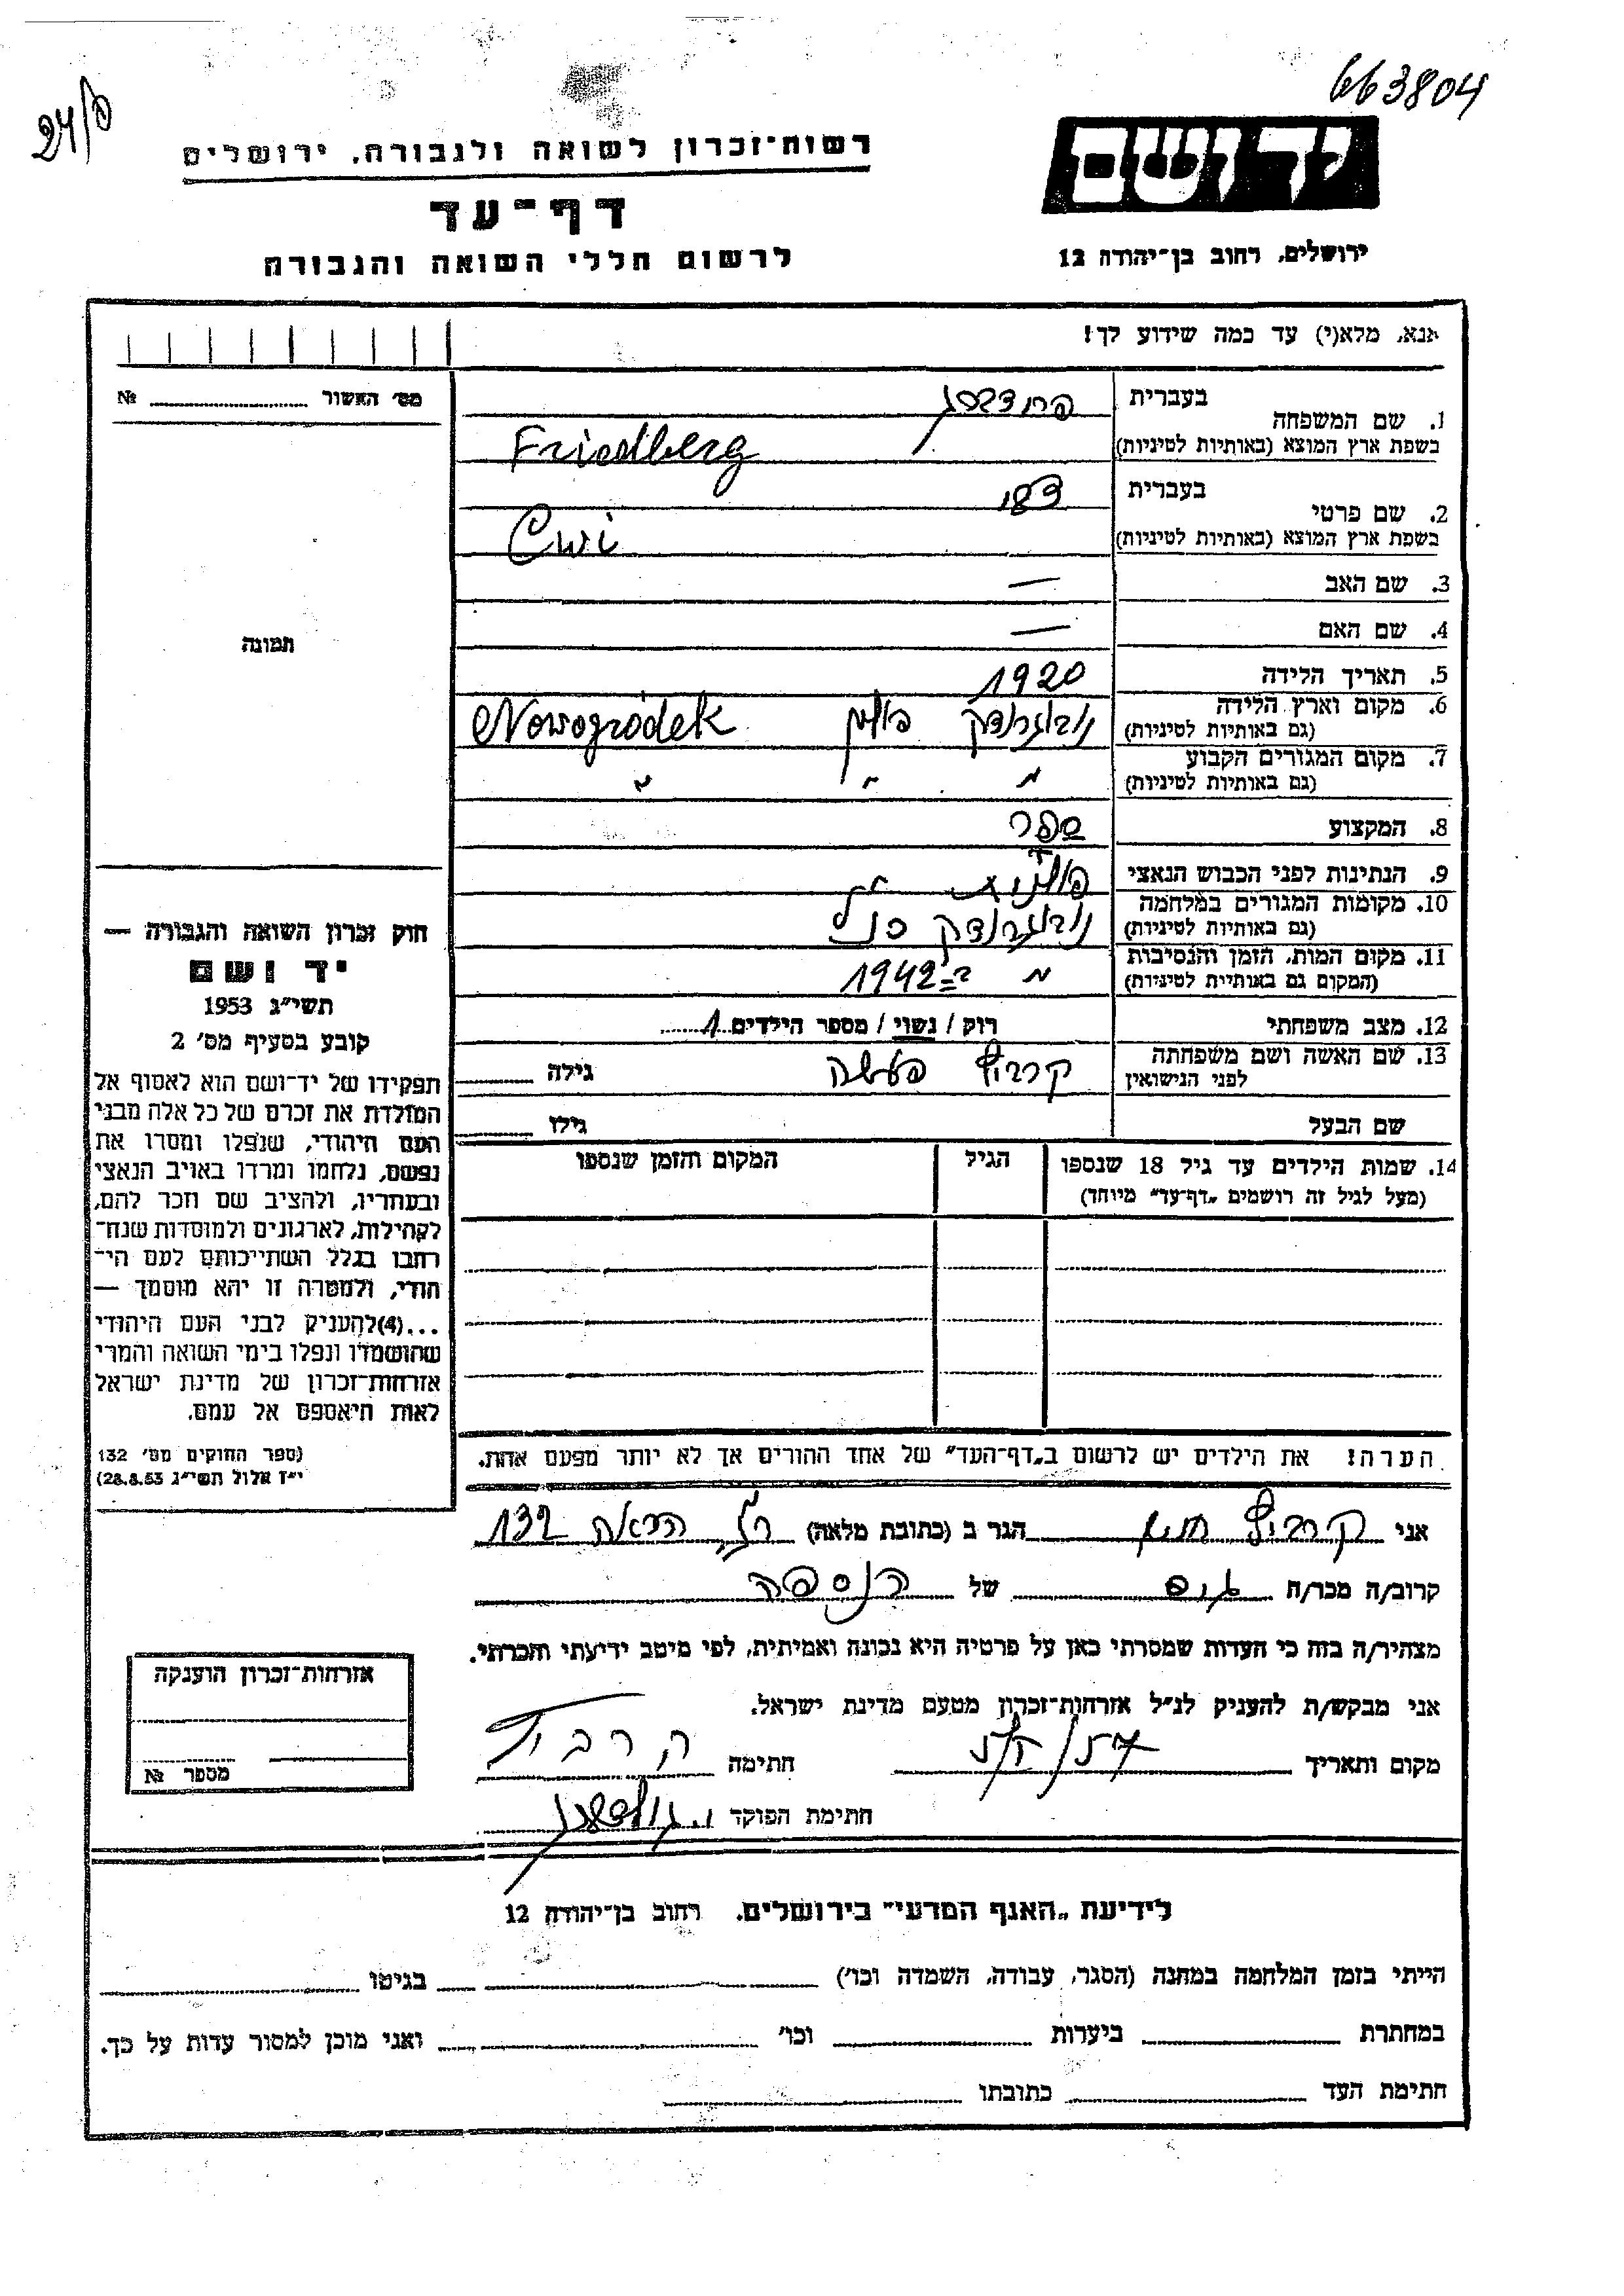 663804
24/פ
יד ושם
רשות־זכרון לשואה ולגבורה, ירושלים
דף־עד
לרשום חללי השואה והגבורה
ירושלים, רחוב בן־יהודה 12
אנא, מלא(י) עד כמה שידוע לך!
מס׳ האשור № 
1. שם המשפחה בעברית פרידברג
בשפת ארץ המוצא (באותיות לטיניות) Friedberg
2. שם פרטי בעברית צבי
בשפת ארץ המוצא (באותיות לטיניות) Cwi
3. שם האב —
4. שם האם —
תמונה
5. תאריך הלידה 1920
6. מקום וארץ הלידה נובוגרודק פולין Nowogródek
(גם באותיות לטיניות)
7. מקום המגורים הקבוע " " "
(גם באותיות לטיניות)
8. המקצוע ספר
9. הנתינות לפני הכבוש הנאצי פולנית
10. מקומות המגורים במלחמה נובוגרודק כנ"ל
(גם באותיות לטיניות)
11. מקום המות, הזמן והנסיבות " ב־1942
(המקום גם באותיות לטיניות)
12. מצב משפחתי רוק / נשוי / מספר הילדים 1
13. שם האשה ושם משפחתה קרביץ גילה
לפני הנישואין
שם הבעל גילו
14. שמות הילדים עד גיל 18 שנספו הגיל המקום והזמן שנספו
(מעל לגיל זה רושמים „דף־עד״ מיוחד)
הערה! את הילדים יש לרשום ב„דף־העד״ של אחד ההורים אך לא יותר מפעם אחת.
חוק זכרון השואה והגבורה —
יד ושם
תשי״ג 1953
קובע בסעיף מס׳ 2
תפקידו של יד־ושם הוא לאסוף אל
המולדת את זכרם של כל אלה מבני
העם היהודי, שנפלו ומסרו את
נפשם, נלחמו ומרדו באויב הנאצי
ובעוזריו, ולהציב שם וזכר להם,
לקהילות, לארגונים ולמוסדות שנח־
רבו בגלל השתייכותם לעם הי־
הודי, ולמטרה זו יהא מוסמך —
...(4)להעניק לבני העם היהודי
שהושמדו ונפלו בימי השואה והמרי
אזרחות־זכרון של מדינת ישראל
לאות היאספם אל עמם.
(ספר החוקים מס׳ 132
י״ז אלול תשי״ג 28.8.53)
אני קרביץ חיים הגר ב (כתובת מלאה) הרא"ה 132
קרוב/ה מכר/ה גיס של הנספה
מצהיר/ה בזה כי העדות שמסרתי כאן על פרטיה היא נכונה ואמיתית, לפי מיטב ידיעתי והכרתי.
אני מבקש/ת להעניק לנ״ל אזרחות־זכרון מטעם מדינת ישראל.
מקום ותאריך חתימה קרביץ
חתימת הפוקד
אזרחות־זכרון הוענקה
מספר №
לידיעת „האגף המדעי״ בירושלים, רחוב בן־יהודה 12
הייתי בזמן המלחמה במחנה (הסגר, עבודה, השמדה וכו׳) בגיטו
במחתרת ביערות וכו׳ ואני מוכן למסור עדות על כך.
חתימת העד כתובתו